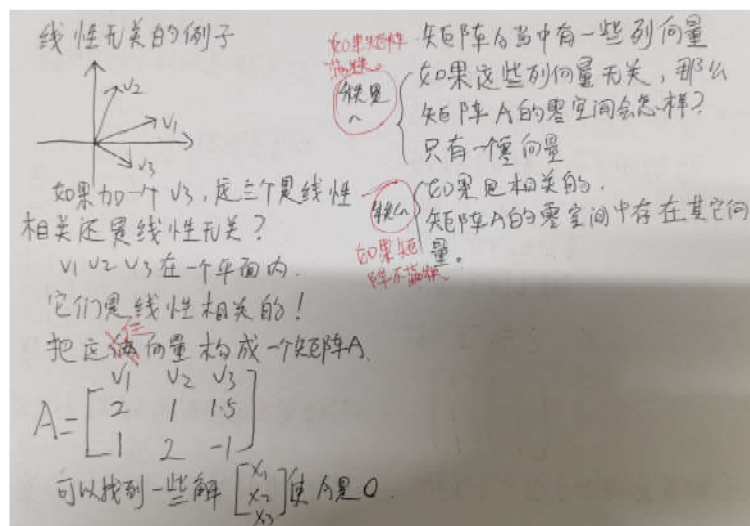 线性无关的例子
v2
v1
v3
如果加一个 v3, 这三个是线性
相关还是线性无关?
v1 v2 v3 在一个平面内.
它们是线性相关的!
三
把这 向量构成一个矩阵A.
v1 v2 v3
A= [2 1 1.5
1 2 -1]
可以找到一些解 [x1 x2 x3] 使A是0.
如果矩阵
满秩.
秩是
n
矩阵A当中有一些列向量
如果这些列向量无关, 那么
矩阵A的零空间会怎样?
只有一个零向量
秩<n
如果是相关的.
矩阵A的零空间中存在其它向
量.
如果矩
阵不满秩.